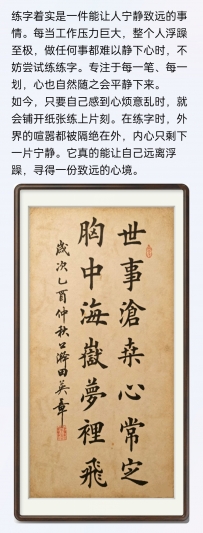 练字着实是一件能让人宁静致远的事
情。每当工作压力巨大，整个人浮躁
至极，做任何事都难以静下心时，不
妨尝试练练字。专注于每一笔、每一
划，心也自然随之会平静下来。
如今，只要自己感到心烦意乱时，就
会铺开纸张练上片刻。在练字时，外
界的喧嚣都被隔绝在外，内心只剩下
一片宁静。它真的能让自己远离浮
躁，寻得一份致远的心境。
世事滄桑心常定
胸中海嶽夢裡飛
歲次乙酉仲秋 田英章